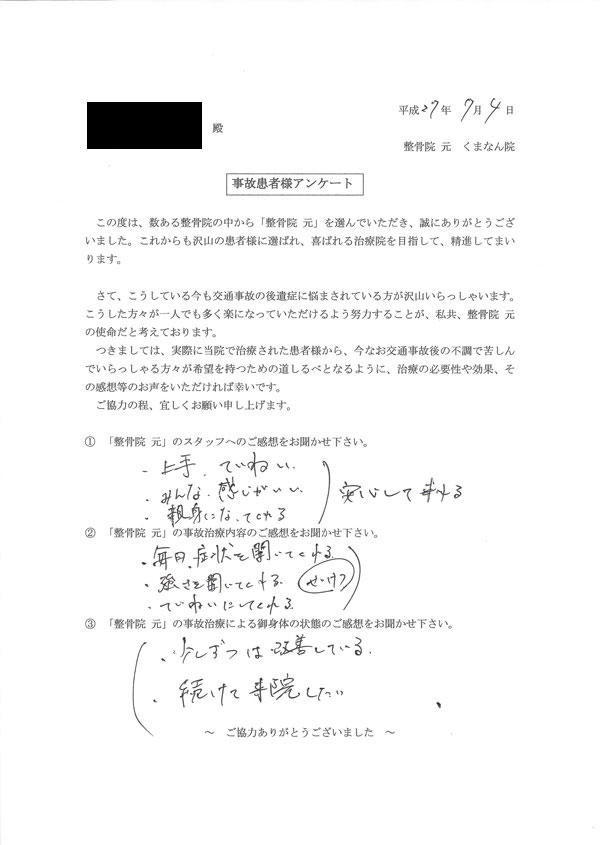 平成27年 7月 4日
殿
整骨院 元 くまなん院
事故患者様アンケート
この度は、数ある整骨院の中から「整骨院 元」を選んでいただき、誠にありがとうござ
いました。これからも沢山の患者様に選ばれ、喜ばれる治療院を目指して、精進してまい
ります。
さて、こうしている今も交通事故の後遺症に悩まされている方が沢山いらっしゃいます。
こうした方々が一人でも多く楽になっていただけるよう努力することが、私共、整骨院 元
の使命だと考えております。
つきましては、実際に当院で治療された患者様から、今なお交通事故後の不調で苦しん
でいらっしゃる方々が希望を持つための道しるべとなるように、治療の必要性や効果、そ
の感想等のお声をいただければ幸いです。
ご協力の程、宜しくお願い申し上げます。
① 「整骨院 元」のスタッフへのご感想をお聞かせ下さい。
・上手、ていねい
・みんな、感じがいい
・親身になってくれる
安心して来れる
② 「整骨院 元」の事故治療内容のご感想をお聞かせ下さい。
・毎日、症状を聞いてくれる
・強さを聞いてくれる。 せいけつ
・ていねいにしてくれる
③ 「整骨院 元」の事故治療による御身体の状態のご感想をお聞かせ下さい。
・少しずつは改善している。
・続けて来院したい
～ ご協力ありがとうございました ～